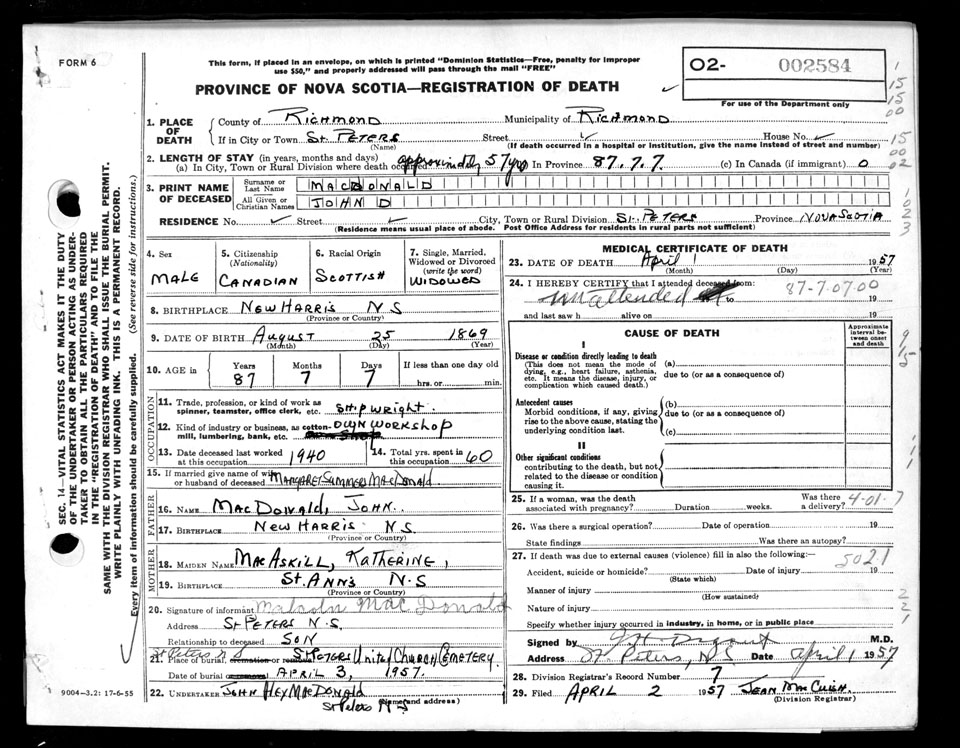 FORM 6
This form, if placed in an envelope, on which is printed "Dominion Statistics—Free, penalty for improper
use $50," and properly addressed will pass through the mail "FREE"
PROVINCE OF NOVA SCOTIA—REGISTRATION OF DEATH
O2- 002584
For use of the Department only
1. PLACE OF DEATH
County of Richmond Municipality of Richmond
If in City or Town St. Peters Street ✓ House No. ✓
(Name) (If death occurred in a hospital or institution, give the name instead of street and number)
2. LENGTH OF STAY (in years, months and days)
(a) In City, Town or Rural Division where death occurred 57 yrs In Province 87.7.7. (c) In Canada (if immigrant) 0
3. PRINT NAME OF DECEASED
Surname or Last Name MACDONALD
All Given or Christian Names JOHN D
RESIDENCE No. ✓ Street ✓ City, Town or Rural Division St. Peters Province Nova Scotia
(Residence means usual place of abode. Post Office Address for residents in rural parts not sufficient)
4. Sex
MALE
5. Citizenship
(Nationality)
CANADIAN
6. Racial Origin
SCOTTISH
7. Single, Married, Widowed or Divorced
(write the word)
WIDOWED
8. BIRTHPLACE New Harris N S
(Province or Country)
9. DATE OF BIRTH August 25 1869
(Month) (Day) (Year)
10. AGE in Years Months Days If less than one day old
87 7 7 hrs. or min.
OCCUPATION
11. Trade, profession, or kind of work as
spinner, teamster, office clerk, etc. Shipwright
12. Kind of industry or business, as cotton- Own Workshop
mill, lumbering, bank, etc.
13. Date deceased last worked
at this occupation 1940
14. Total yrs. spent in
this occupation 60
15. If married give name of wife
or husband of deceased Margaret Summers MacDonald
FATHER
16. NAME MacDonald, John
17. BIRTHPLACE New Harris N S
(Province or Country)
MOTHER
18. MAIDEN NAME MacAskill, Katherine,
19. BIRTHPLACE St. Ann's N.S
(Province or Country)
20. Signature of informant Malcolm MacDonald
Address St Peters N.S.
Relationship to deceased SON
St Peters N S
21. Place of burial, cremation or removal St Peters United Church Cemetery
Date of burial APRIL 3, 1957.
22. UNDERTAKER John Hex MacDonald
(Name and address)
St Peters N S
MEDICAL CERTIFICATE OF DEATH
23. DATE OF DEATH April 1 1957
(Month) (Day) (Year)
24. I HEREBY CERTIFY that I attended deceased from: 87-7-07.00
unattended to 19
and last saw h alive on 19
CAUSE OF DEATH
Approximate interval between onset and death
I
Disease or condition directly leading to death (a)
(This does not mean the mode of dying, e.g., heart failure, asthenia, etc. It means the disease, injury, or complication which caused death.)
due to (or as a consequence of)
Antecedent causes
Morbid conditions, if any, giving rise to the above cause, stating the underlying condition last.
(b)
due to (or as a consequence of)
(c)
II
Other significant conditions
contributing to the death, but not related to the disease or condition causing it.
25. If a woman, was the death Was there 4-01-7
associated with pregnancy? Duration weeks. a delivery?
26. Was there a surgical operation? Date of operation 19
State findings Was there an autopsy?
27. If death was due to external causes (violence) fill in also the following:— 5021
Accident, suicide or homicide? Date of injury 19
(State which)
Manner of injury
(How sustained)
Nature of injury
Specify whether injury occurred in industry, in home, or in public place
Signed by M.D.
Address St. Peters, N S Date April 1 1957
28. Division Registrar's Record Number 7
29. Filed APRIL 2 1957
(Division Registrar)
SEC. 14—VITAL STATISTICS ACT MAKES IT THE DUTY
OF THE UNDERTAKER OR PERSON ACTING AS UNDER-
TAKER TO OBTAIN ALL THE PARTICULARS REQUIRED
IN THE "REGISTRATION OF DEATH" AND TO FILE THE
SAME WITH THE DIVISION REGISTRAR WHO SHALL ISSUE THE BURIAL PERMIT.
WRITE PLAINLY WITH UNFADING INK. THIS IS A PERMANENT RECORD.
Every item of information should be carefully supplied. (See reverse side for instructions.)
9004—3.2: 17-6-55